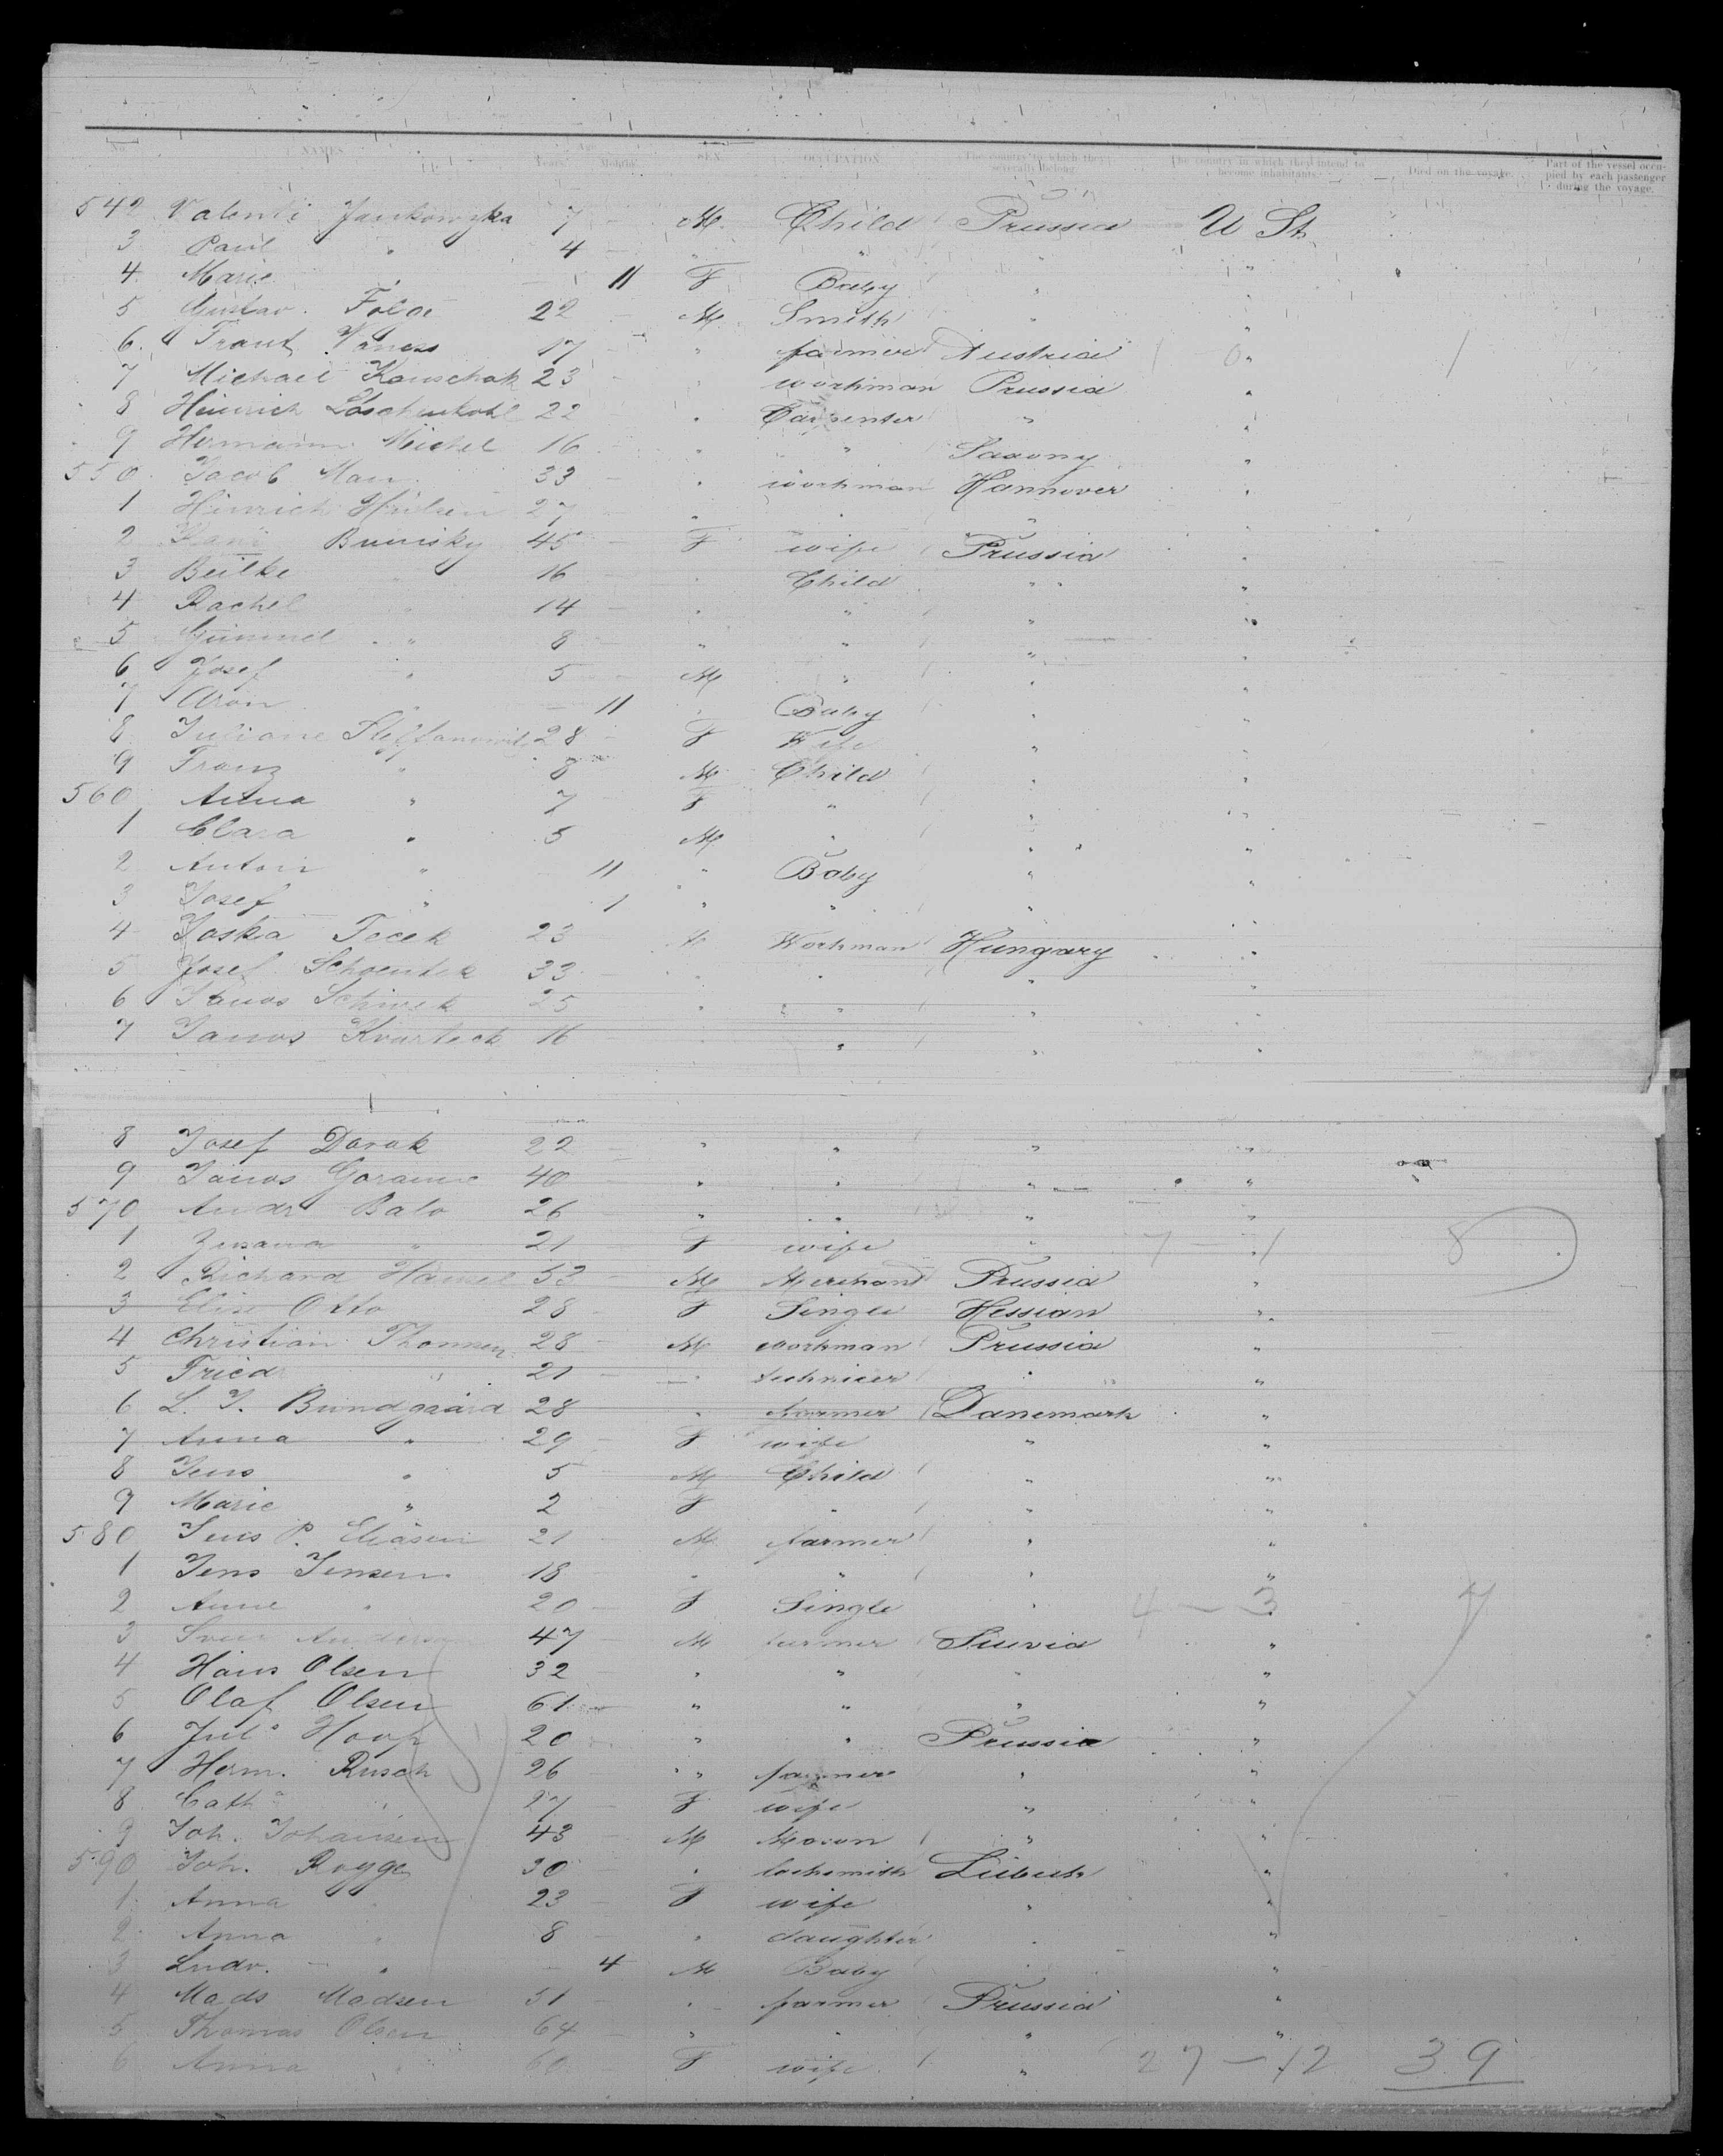 No. NAMES Age Years Months SEX OCCUPATION The country to which they severally belong. The country in which they intend to become inhabitants. Died on the voyage. Part of the vessel occupied by each passenger during the voyage.
542 Valenti Jankowzka 7 - M. Child Prussia U St.
3 Paul " 4 - " " " "
4 Marie " - 11 F Baby " "
5 Gustav. 22 - M. Smith " "
6. 17 - " farmer Austria 1 - 0 " 1
7 Michael Kauschak 23 - " workman Prussia "
8 Heinrich Löschenkohl 22 " Carpenter " "
9 Hermann Michel 16 " " Saxony "
550 Jacob Man 33 - " workman Hannover "
1 Hinrich 27 " " " "
2 45 - F wife Prussia "
3 Beilke " 16 - " Child " "
4 Rachel " 14 - " " " "
5 " 8 - " " " "
6 Josef " 5 - M " " "
7 Aron " - 11 " Baby " "
8 Juliane 28 - F Wife " "
9 Franz " 8 M Child " "
560 Anna " 7 - F " " "
1 Clara " 5 M " " "
2 Anton " 11 " Baby " "
3 Josef " 1 " " " "
4 Joska Tocek 23 M Workman Hungary "
5 Josef 33 " " " "
6 Janos 25 " " " "
7 Janos 16 " " " "
8 Josef Darak 22 - " " " "
9 Janos 40 - " " " "
570 Andr Balo 26 - " " " "
1 Zuzana " 21 - F wife " 7 - 1 8
2 Richard 53 - M Merchant Prussia "
3 Elise Otto 28 - F Single Hessian "
4 Christian Thomsen 28 - M workman Prussia "
5 Friedr " 21 - " technicer " "
6 L. J. Bundgaard 28 " farmer Danemark "
7 Anna " 29 - F wife " "
8 Jens " 5 - M Child " "
9 Marie " 2 - F " " "
580 Jens P. Eliasen 21 - M farmer " "
1 Jens Jensen 18 - " " " "
2 Anne " 20 - F Single " 4 - 3 7
3 Sven 47 - M farmer "
4 Hans Olsen 32 - " " " "
5 Olaf Olsen 61 - " " " "
6 Jul° Hoop 20 - " " Prussia "
7 Herm. Rusch 26 " farmer " "
8 Cath " 27 - F wife " "
9 Joh. Johansen 43 - M Mason " "
590 Joh. Rogge 30 - " locksmith Lübeck "
1 Anna " 23 - F wife " "
2 Anna " 8 - " daughter " "
3 Ludv. " - 4 M Baby " "
4 Mads Madsen 31 - " farmer Prussia "
5 Thomas Olsen 64 - " " " "
6 Anna " 60 F wife " 27 - 12 39